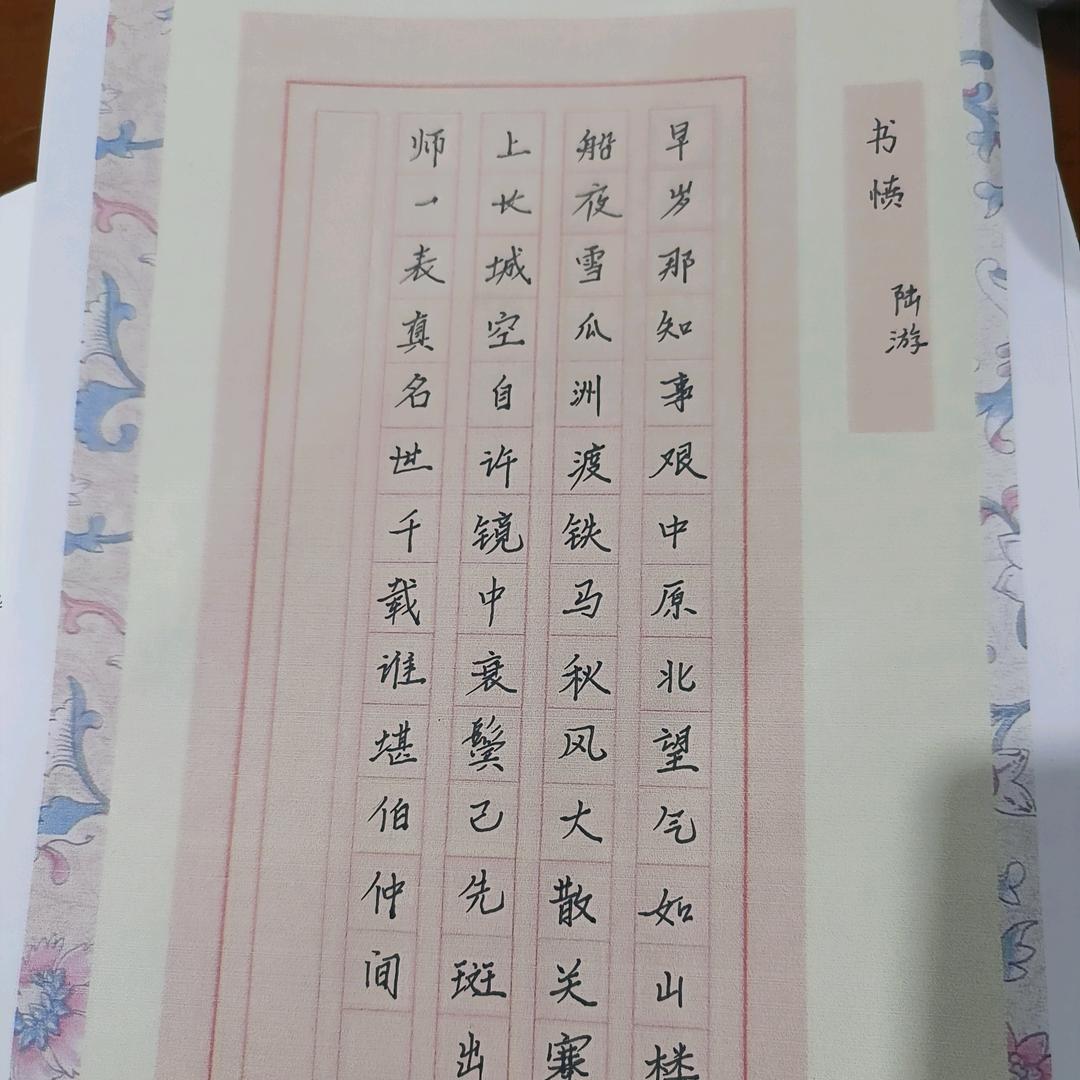 书愤
陆游
早岁那知事艰中原北望气如山楼
船夜雪瓜洲渡铁马秋风大散关塞
上长城空自许镜中衰鬓己先斑出
师一表真名世千载谁堪伯仲间